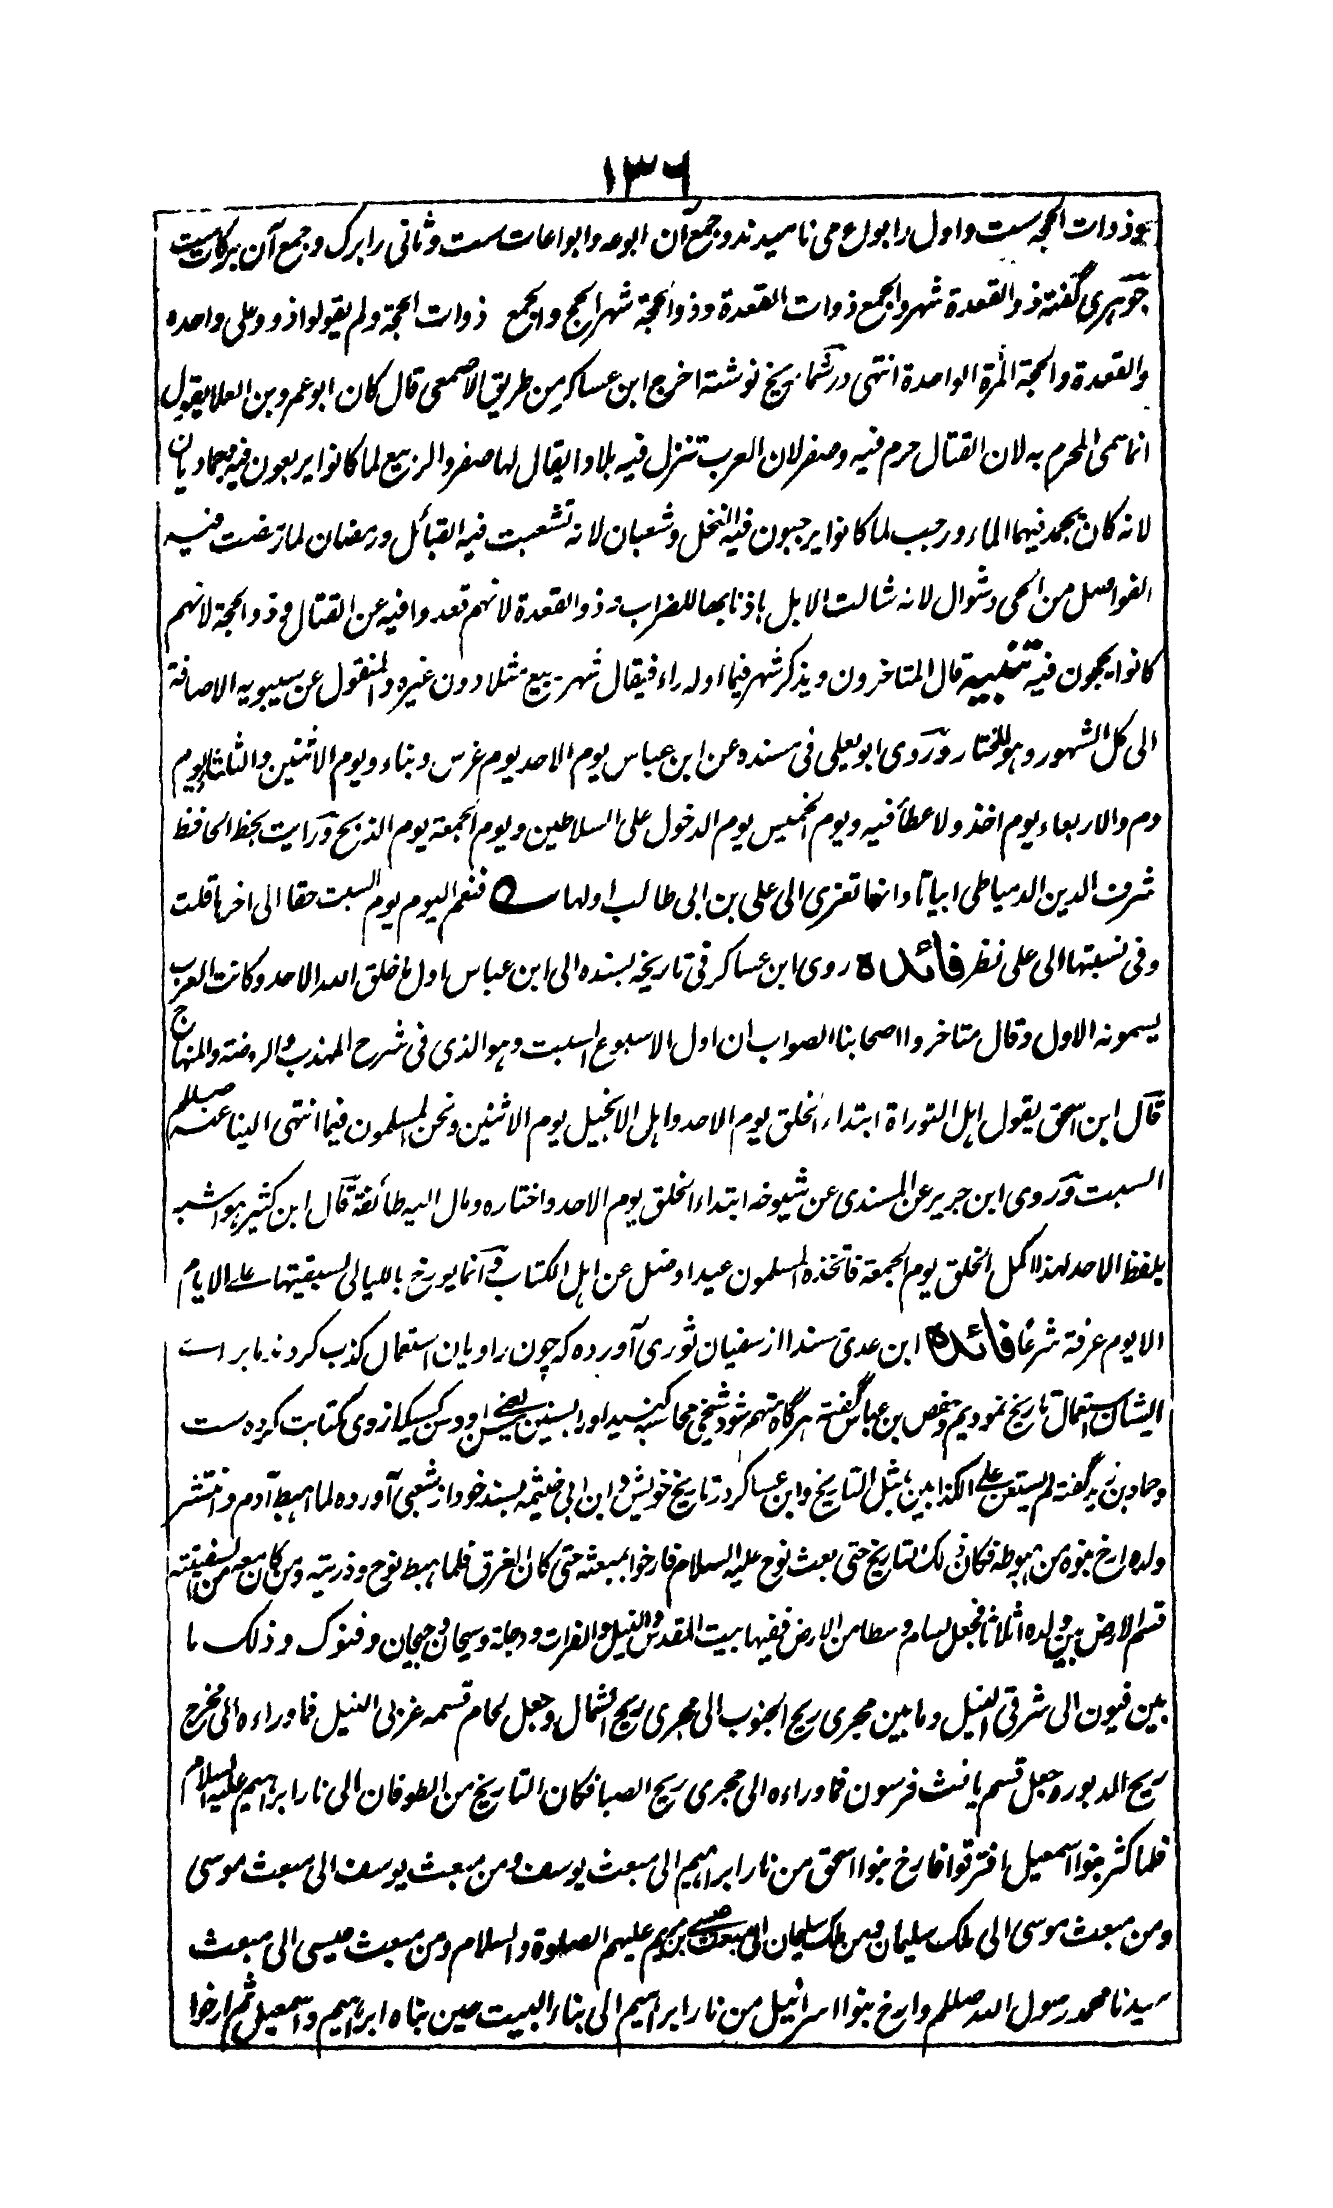 ۱۳۶
وذوات الحجه ست واول را بواع می نامیدند وجمع آن ابوعه وابواعات ست وثانی را برک وجمع آن برکات ست
جوہری گفته ذوالقعدة شهر والجمع ذوات القعدة وذوالحجة شهر الحج والجمع ذوات الحجة ولم یقولوا ذوو علی واحده
والقعدة والحجة المرة الواحدة انتهی در شماریخ نوشته اخرج ابن عساکر من طریق الاصمعی قال کان ابو عمرو بن العلا یقول
انما سمی المحرم به لان القتال حرم فیه وصفر لان العرب تنزل فیه بلادا یقال لها صفر والربیع لما کانوا یربعون فیه وجمادیان
لانه کان یجمد فیهما الماء ورجب لما کانوا یرجبون فیه النخل وشعبان لانه تشعبت فیه القبائل ورمضان لما رمضت فیه
الفواصل من الحمی وشوال لانه شالت الابل باذنابها للضراب وذوالقعدة لانهم قعدوا فیه عن القتال وذوالحجة لانهم
کانوا یحجون فیه تنبیه قال المتاخرون ویذکر شهر فیما اوله راء فیقال شهر ربیع مثلا دون غیره والمنقول عن سیبویه الاضافة
الی کل الشهور وهو المختار وروی ابو یعلی فی مسنده عن ابن عباس یوم الاحد یوم غرس وبناء ویوم الاثنین والثلثا یوم
دم والاربعاء یوم اخذ ولا عطأ فیه ویوم الخمیس یوم الدخول علی السلاطین ویوم الجمعة یوم الذبح ورایت بخط الحافظ
شرف الدین الدمیاطی ابیاتا وانها تعزی الی علی بن ابی طالب اولها فنعم الیوم یوم السبت حقا الی اخرها قلت
وفی نسبتها الی علی نظر فائده روی ابن عساکر فی تاریخه بسنده الی ابن عباس اول ما خلق الله الاحد وکانت العرب
یسمونه الاول وقال متاخروا اصحابنا الصواب ان اول الاسبوع السبت وهو الذی فی شرح المهذب والروضة والمنهاج
قال ابن اسحق یقول اهل التوراة ابتداء الخلق یوم الاحد واهل الانجیل یوم الاثنین ونحن المسلمون فیما انتهی الینا عنه صلعم
السبت وروی ابن جریر عن المسندی عن شیوخه ابتداء الخلق یوم الاحد واختاره ومال الیه طائفة قال ابن کثیر هو اشبه
بلفظ الاحد لهذا کمل الخلق یوم الجمعة فاتخذه المسلمون عیدا وضل عن اهل الکتاب وانما یورخ باللیالی لسبقیتها علی الایام
الا یوم عرفة شرعًا فائده ابن عدی سندا از سفیان ثوری آورده که چون راویان استعمال کذب کردند ما برای
ایشان استعمال تاریخ نمودیم وحفص بن عیاس گفته هرگاه متهم شود شیخی محاسبه کنید او را بسنین یعنی سن او وسن کسیکه از وی کتابت کرده ست
وحماد بن زید گفته لم یستعن علی الکذابین بمثل التاریخ وابن عساکر در تاریخ خویش وابن ابی خیثمه بسند خود از شعبی آورده لما اهبط آدم وانتشر
ولده ارخ بنوه من هبوطه فکان ذلک التاریخ حتی بعث نوح علیه السلام فارخوا بمبعثه حتی کان الغرق فلما هبط نوح وذریته ومن کان معه من السفینة
قسم الارض بین ولده اثلاثا فجعل لسام وسطا من الارض ففیها بیت المقدس والنیل والفرات ودجلة وسیحان وجیحان وفنوک وذلک ما
بین فیون الی شرقی النیل وما بین مجری ریح الجنوب الی مجری ریح الشمال وجعل لحام قسمه غربی النیل فما وراءه الی مخرج
ریح الدبور وجعل قسم یافث فرسون فما وراءه الی مجری ریح الصبا فکان التاریخ من الطوفان الی نار ابراهیم علیه السلام
فلما کثر بنوا اسمعیل افترقوا فارخ بنوا اسحق من نار ابراهیم الی مبعث یوسف ومن مبعث یوسف الی مبعث موسی
ومن مبعث موسی الی ملک سلیمان ومن ملک سلیمان الی مبعث عیسی بن مریم علیهم الصلوة والسلام ومن مبعث عیسی الی مبعث
سیدنا محمد رسول الله صلعم وارخ بنوا اسرائیل من نار ابراهیم الی بناء البیت حین بناه ابراهیم واسمعیل ثم ارخوا